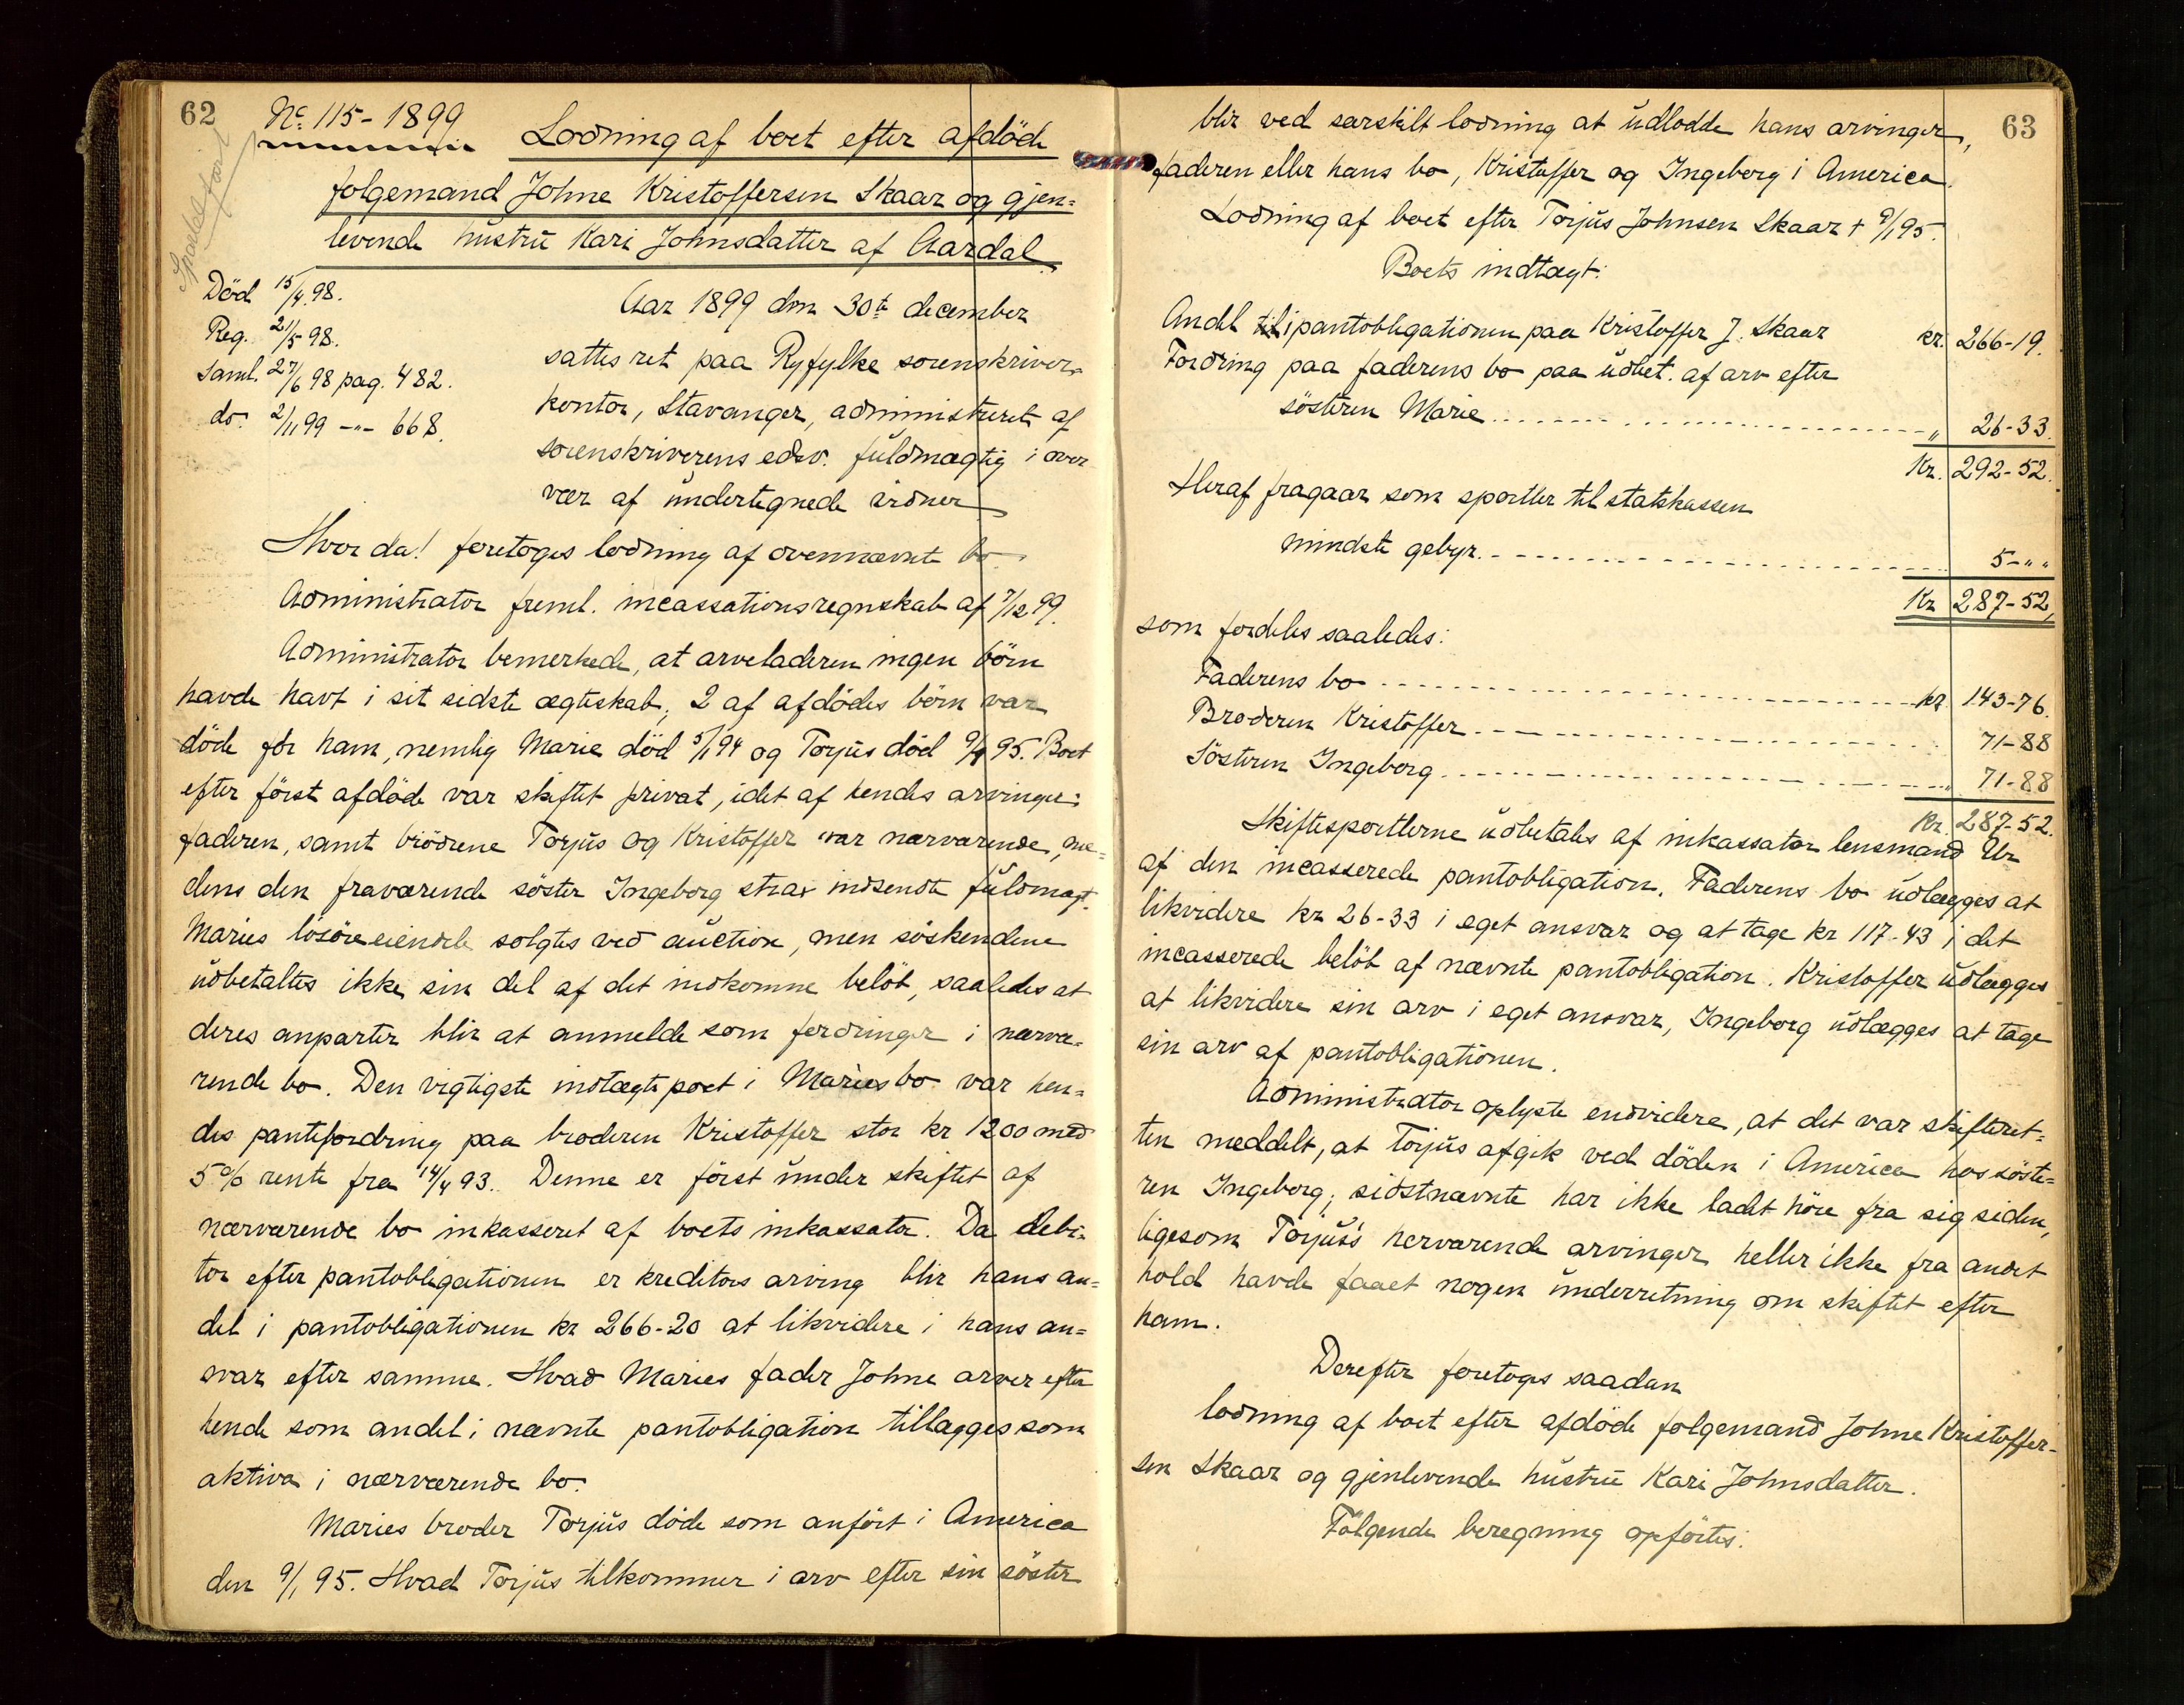 62
Nº 115-1899
Lodning af boet efter afdöde
folgemand Johne Kristoffersen Skaar og gjen=
levende hustru Kari Johnsdatter af Aardal.
Död 15/4 98.
Reg. 21/5 98.
Saml. 27/6 98 pag. 482.
do. 2/11 99 -"- 668.
Aar 1899 den 30te december
sattes ret paa Ryfylke sorenskriver-
kontor, Stavanger, administreret af
sorenskriverens edsv. fuldmægtig i over
vær af undertegnede vidner
Hvor da! foretoges lodning af ovennævnte bo.
Administrator freml. incassationsregnskab af 7/12 99.
Administrator bemerkede, at arveladeren ingen börn
havde havt i sit sidste ægteskab; 2 af afdödes börn var
döde för ham, nemlig Marie död 5/1 94 og Torjus död 9/1 95. Boet
efter först afdöde var skiftet privat, idet af hendes arvinger:
faderen, samt brödrene Torjus og Kristoffer var nærværende, me=
dens den fraværende söster Ingeborg strax indsendte fuldmagt.
Maries lösöreeiendele solgtes ved auction, men söskendene
udbetaltes ikke sin del af det indkomne belöb, saaledes at
deres anparter blir at anmelde som fordringer i nærvæ=
rende bo. Den vigtigste indtægtspost i Maries bo var hen=
des pantefordring paa broderen Kristoffer stor kr 1200 med
5 % rente fra 14/4 93. Denne er först under skiftet af
nærværende bo inkasseret af boets inkassator. Da debi=
tor efter pantobligationen er kreditors arving blir hans an=
del i pantobligationen kr 266-20 at likvidere i hans an=
svar efter samme. Hvad Maries fader Johne arver efter
hende som andel i nævnte pantobligation tillægges som
aktiva i nærværende bo.
Maries broder Torjus döde som anfört i America
den 9/1 95. Hvad Torjus tilkommer i arv efter sin söster
63
blir ved særskilt lodning at udlodde hans arvinger,
faderen eller hans bo, Kristoffer og Ingeborg i America.
Lodning af boet efter Torjus Johnsen Skaar † 9/1 95.
Boets indtægt:
Andel til i pantobligationen paa Kristoffer J. Skaar kr. 266-19.
Fordring paa faderens bo paa udbet. af arv efter
sösteren Marie " 26-33.
Kr. 292-52.
Heraf fragaar som sportler til statskassen
mindste gebyr. 5-" "
Kr 287-52,
som fordeles saaledes:
Faderens bo kr. 143-76.
Broderen Kristoffer 71-88
Sösteren Ingeborg " 71-88
Kr. 287-52.
Skiftesportlerne udbetales af inkassator lensmand Ur
af den incasserede pantobligation. Faderens bo udlægges at
likvidere kr 26-33 i eget ansvar og at tage kr 117-43 i det
incasserede belöb af nævnte pantobligation. Kristoffer udlægges
at likvidere sin arv i eget ansvar, Ingeborg udlægges at tage
sin arv af pantobligationen.
Administrator oplyste endvidere, at det var skifteret=
ten meddelt, at Torjus afgik ved döden i America hos söste=
ren Ingeborg; sidstnævnte har ikke ladt höre fra sig siden,
ligesom Torjus's herværende arvinger heller ikke fra andet
hold havde faaet nogen underretning om skiftet efter
ham.
Derefter foretoges saadan
lodning af boet efter afdöde folgemand Johne Kristoffer-
sen Skaar og gjenlevende hustru Kari Johnsdatter.
Fölgende beregning opförtes: